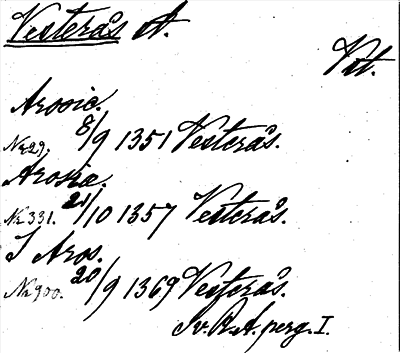 Vesterås A.
Vst.
Arosie.
Nr 29. 8/9 1351 Vesterås.
Arosie.
Nr 331. 21/10 1357 Vesterås.
I Aros.
Nr 900. 20/9 1369 Vesterås.
Sv. R. A. perg. I.